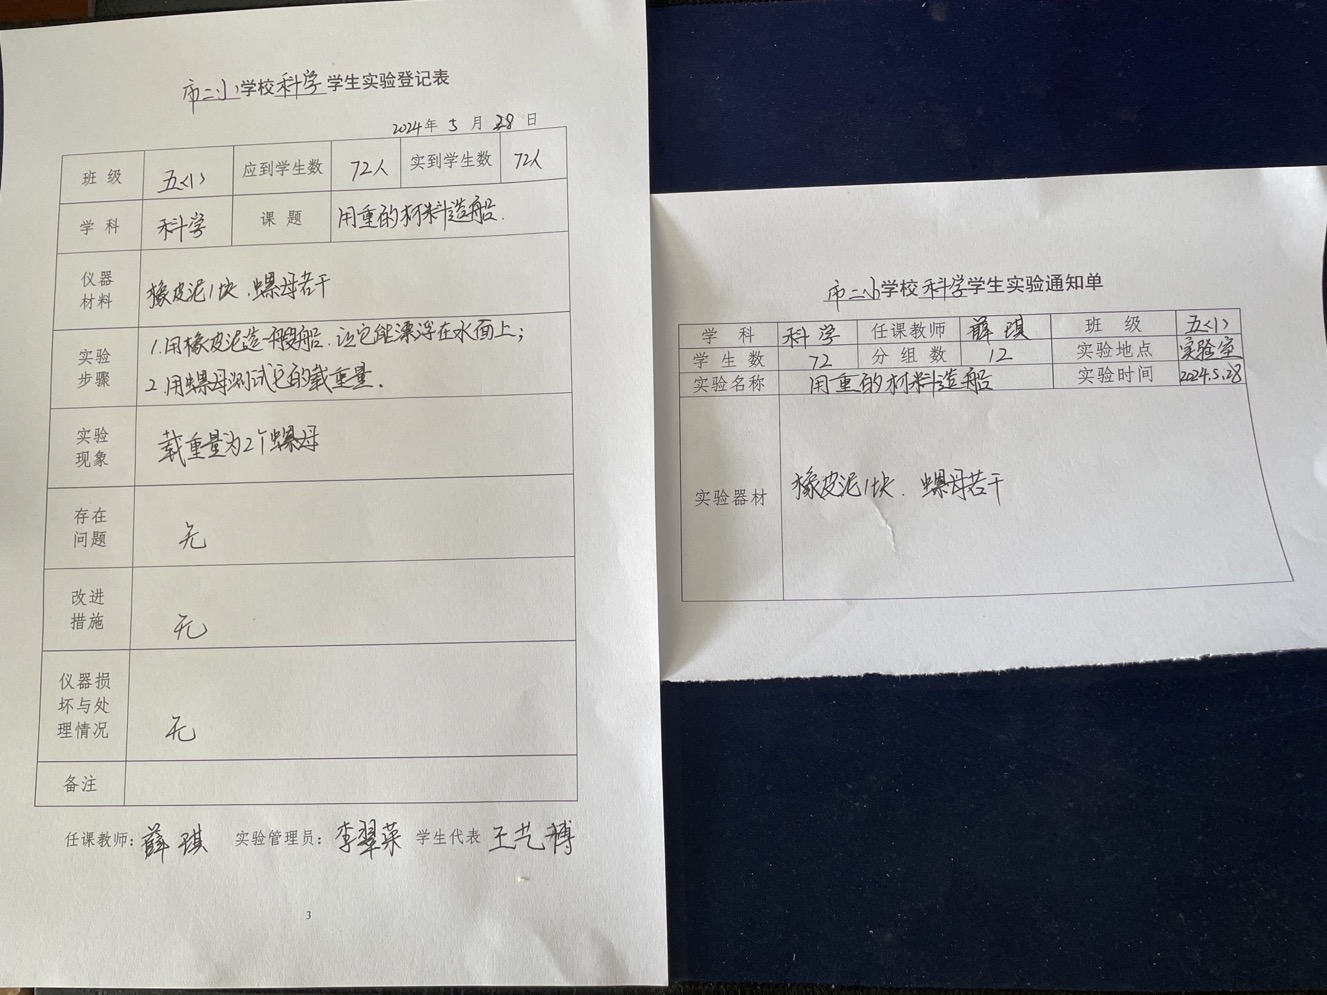 市二小学校科学学生实验登记表
2024年 5 月 28 日
班 级 五<1> 应到学生数 72人 实到学生数 72人
学 科 科学 课 题 用重的材料造船.
仪器
材料
橡皮泥1块、螺母若干
实验
步骤
1.用橡皮泥造一艘船、让它能漂浮在水面上;
2.用螺母测试它的载重量.
实验
现象
载重量为2个螺母
存在
问题
无
改进
措施
无
仪器损
坏与处
理情况
无
备注
任课教师: 薛琪 实验管理员: 李翠菜 学生代表 王艺博
3
市二小学校科学学生实验通知单
学 科 科学 任课教师 薛琪 班 级 五<1>
学 生 数 72 分 组 数 12 实验地点 实验室
实验名称 用重的材料造船 实验时间 2024.5.28
实验器材 橡皮泥1块、螺母若干